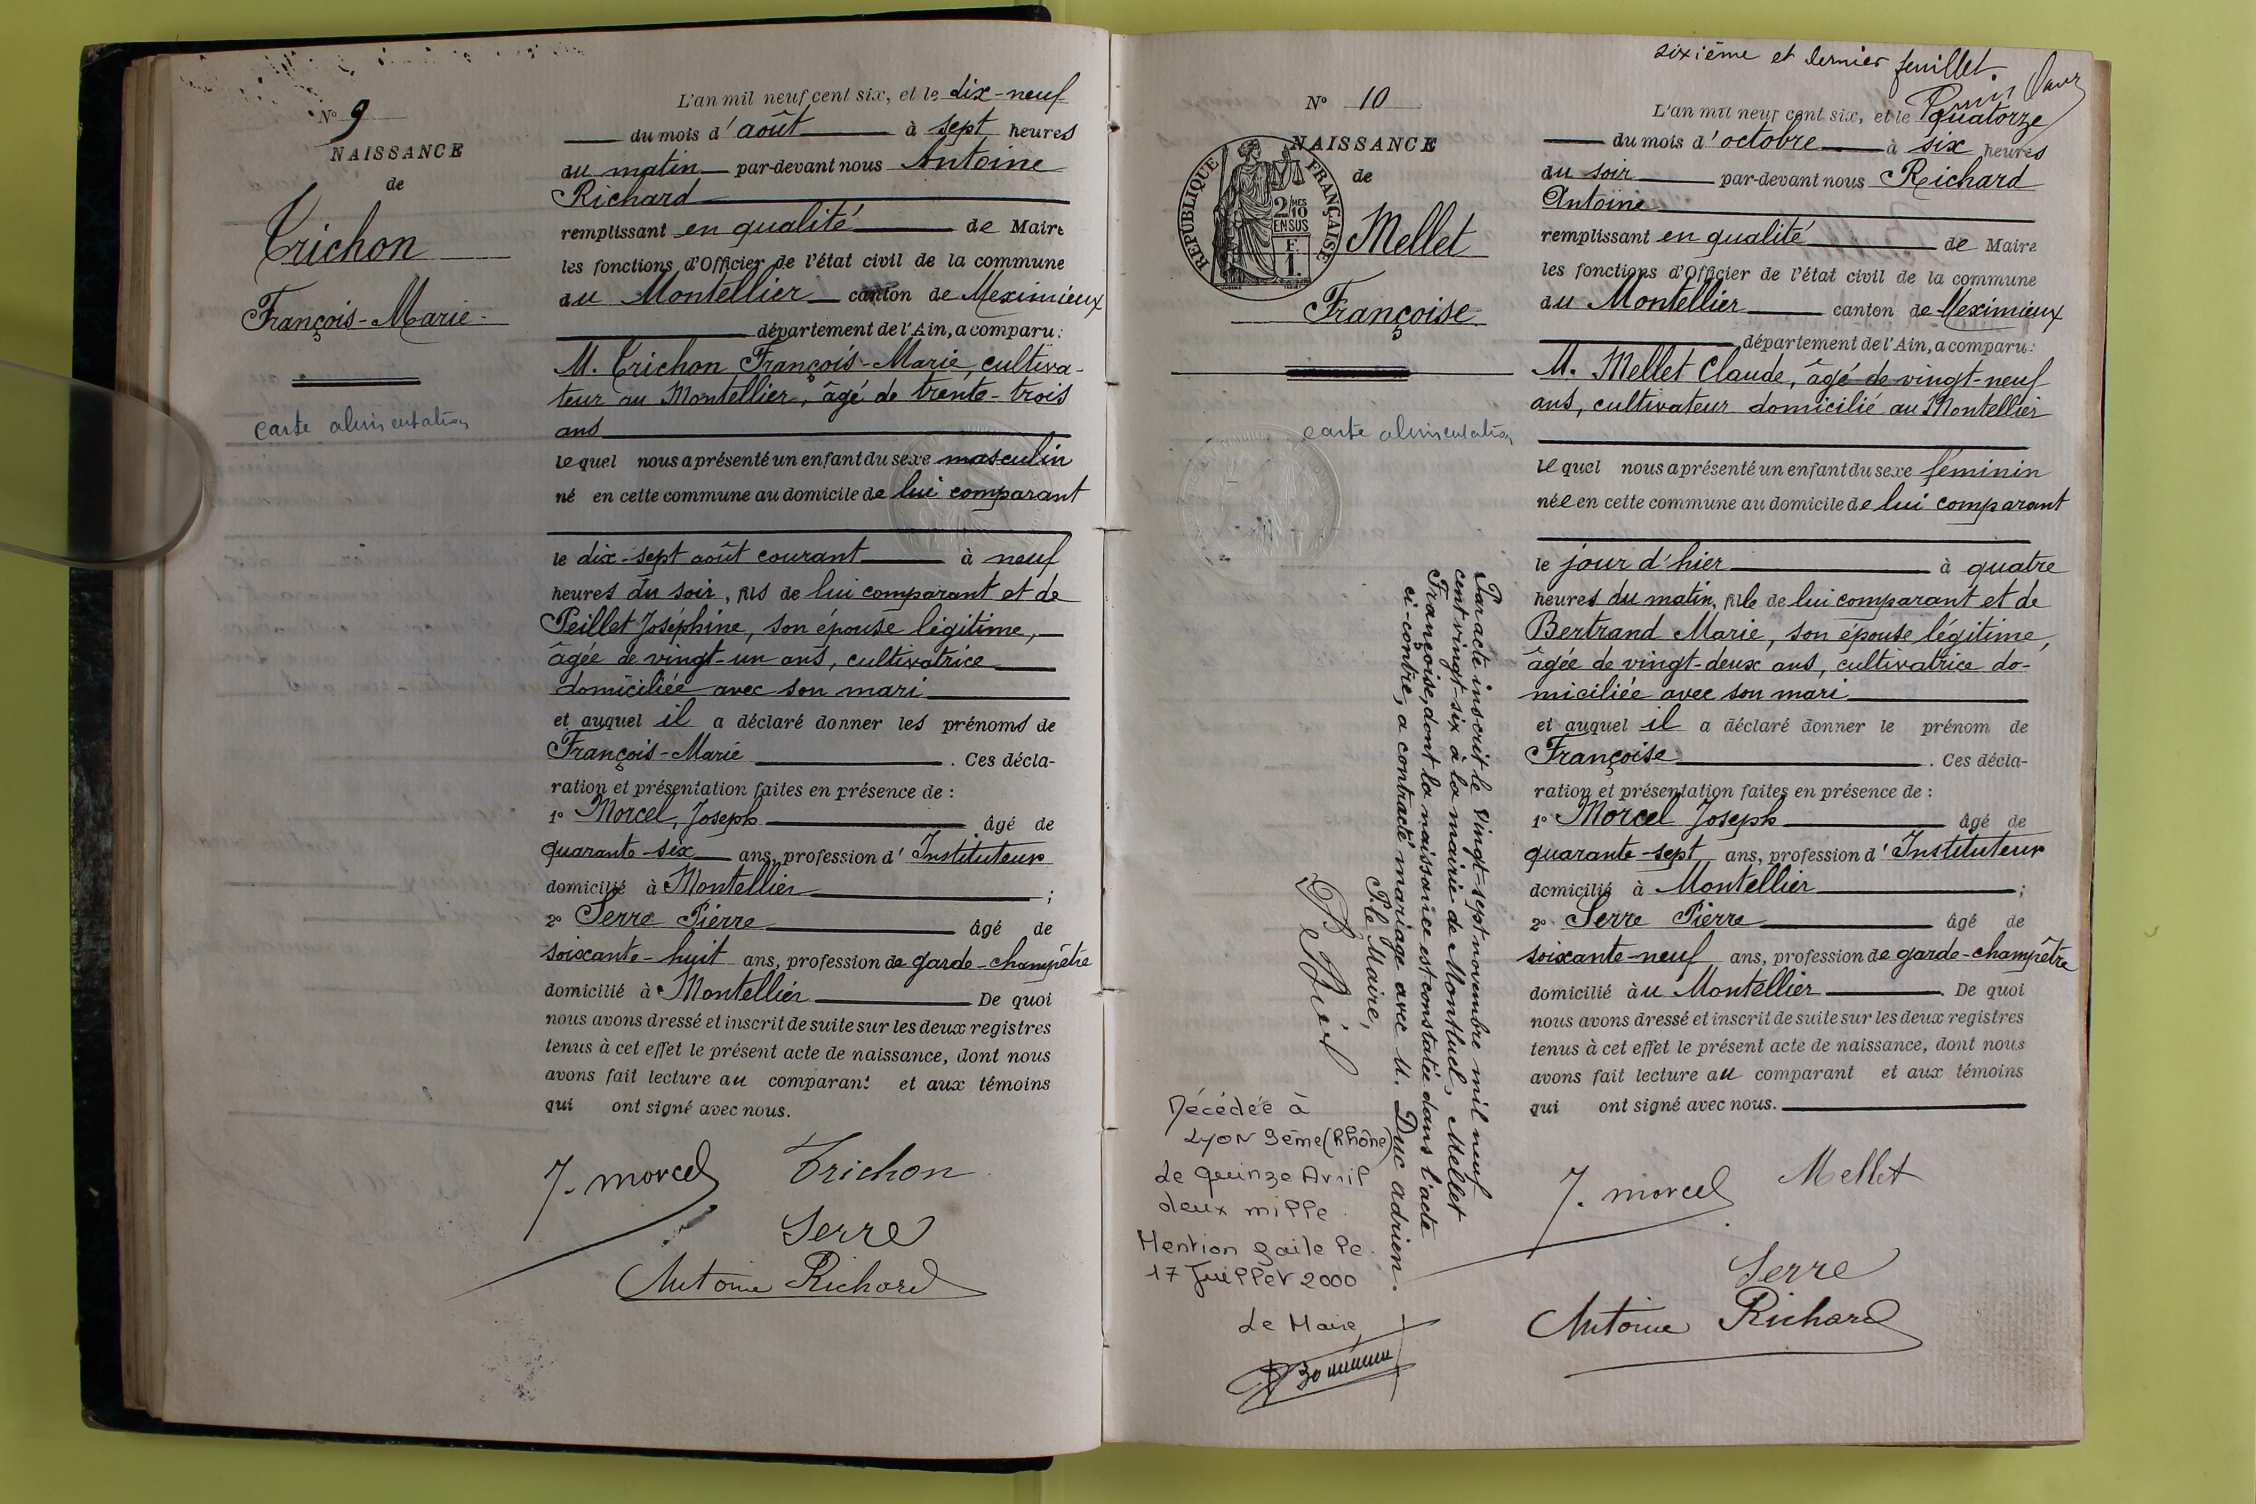 N° 9
NAISSANCE
de
Trichon
François-Marie
carte alimentation
L'an mil neuf cent six, et le dix-neuf
du mois d'août à sept heures
du matin par-devant nous Antoine
Richard
remplissant en qualité de Maire
les fonctions d'Officier de l'état civil de la commune
du Montellier canton de Meximieux
département de l'Ain, a comparu:
M. Trichon François-Marie, cultiva-
teur au Montellier, âgé de trente-trois
ans
lequel nous a présenté un enfant du sexe masculin
né en cette commune au domicile de lui comparant
le dix-sept août courant à neuf
heures du soir, fils de lui comparant et de
Peillet Joséphine, son épouse légitime,
âgée de vingt-un ans, cultivatrice
domiciliée avec son mari
et auquel il a déclaré donner les prénoms de
François-Marie. Ces décla-
ration et présentation faites en présence de:
1° Morcel, Joseph âgé de
quarante-six ans, profession d'Instituteur
domicilié à Montellier;
2° Serre Pierre âgé de
soixante-huit ans, profession de garde-champêtre
domicilié à Montellier De quoi
nous avons dressé et inscrit de suite sur les deux registres
tenus à cet effet le présent acte de naissance, dont nous
avons fait lecture au comparant et aux témoins
qui ont signé avec nous.
J. morcel Trichon
Serre
Antoine Richard
sixième et dernier feuillet.
N° 10
NAISSANCE
de
RÉPUBLIQUE FRANÇAISE
2/MES
10
EN SUS
F.
1.
Mellet
Françoise
carte alimentation
L'an mil neuf cent six, et le Quatorze
du mois d'octobre à six heures
du soir par-devant nous Richard
Antoine
remplissant en qualité de Maire
les fonctions d'Officier de l'état civil de la commune
du Montellier canton de Meximieux
département de l'Ain, a comparu:
M. Mellet Claude, âgé de vingt-neuf
ans, cultivateur domicilié au Montellier
lequel nous a présenté un enfant du sexe féminin
née en cette commune au domicile de lui comparant
le jour d'hier à quatre
heures du matin, fille de lui comparant et de
Bertrand Marie, son épouse légitime,
âgée de vingt-deux ans, cultivatrice do-
miciliée avec son mari
et auquel il a déclaré donner le prénom de
Françoise. Ces décla-
ration et présentation faites en présence de:
1° Morcel Joseph âgé de
quarante-sept ans, profession d'Instituteur
domicilié à Montellier;
2° Serre Pierre âgé de
soixante-neuf ans, profession de garde-champêtre
domicilié au Montellier. De quoi
nous avons dressé et inscrit de suite sur les deux registres
tenus à cet effet le présent acte de naissance, dont nous
avons fait lecture au comparant et aux témoins
qui ont signé avec nous.
J. morcel Mellet
Serre
Antoine Richard
Par acte inscrit le vingt-sept novembre mil neuf
cent vingt-six à la mairie de Montluel, Mellet
Françoise, dont la naissance est constatée dans l'acte
ci-contre, a contracté mariage avec M. Duc Adrien.
P. le Maire,
Décédée à
Lyon 9ème (Rhône)
Le quinze Avril
deux mille.
Mention faite le.
17 Juillet 2000
Le Maire